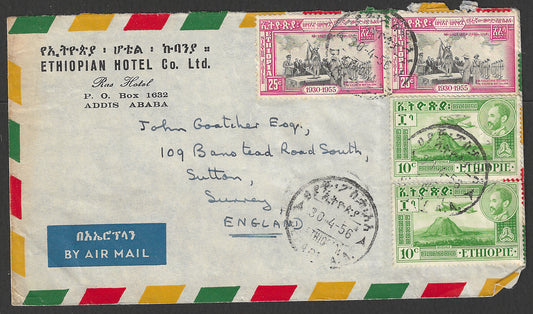 የኢትዮጵያ ፡ ሆቴል ፡ ኩባንያ ።
ETHIOPIAN HOTEL Co. Ltd.
Ras Hotel
P. O. Box 1632
ADDIS ABABA
ETHIOPIA
25c
1930-1955
ETHIOPIA
25c
1930-1955
John Goatcher Esq.,
109 Banstead Road South,
Sutton,
Surrey
ENGLAND
ኢትዮጵያ
10c ETHIOPIE
ኢትዮጵያ
10c ETHIOPIE
30-4-56
30-4-56
በአኤሮፕላን
BY AIR MAIL